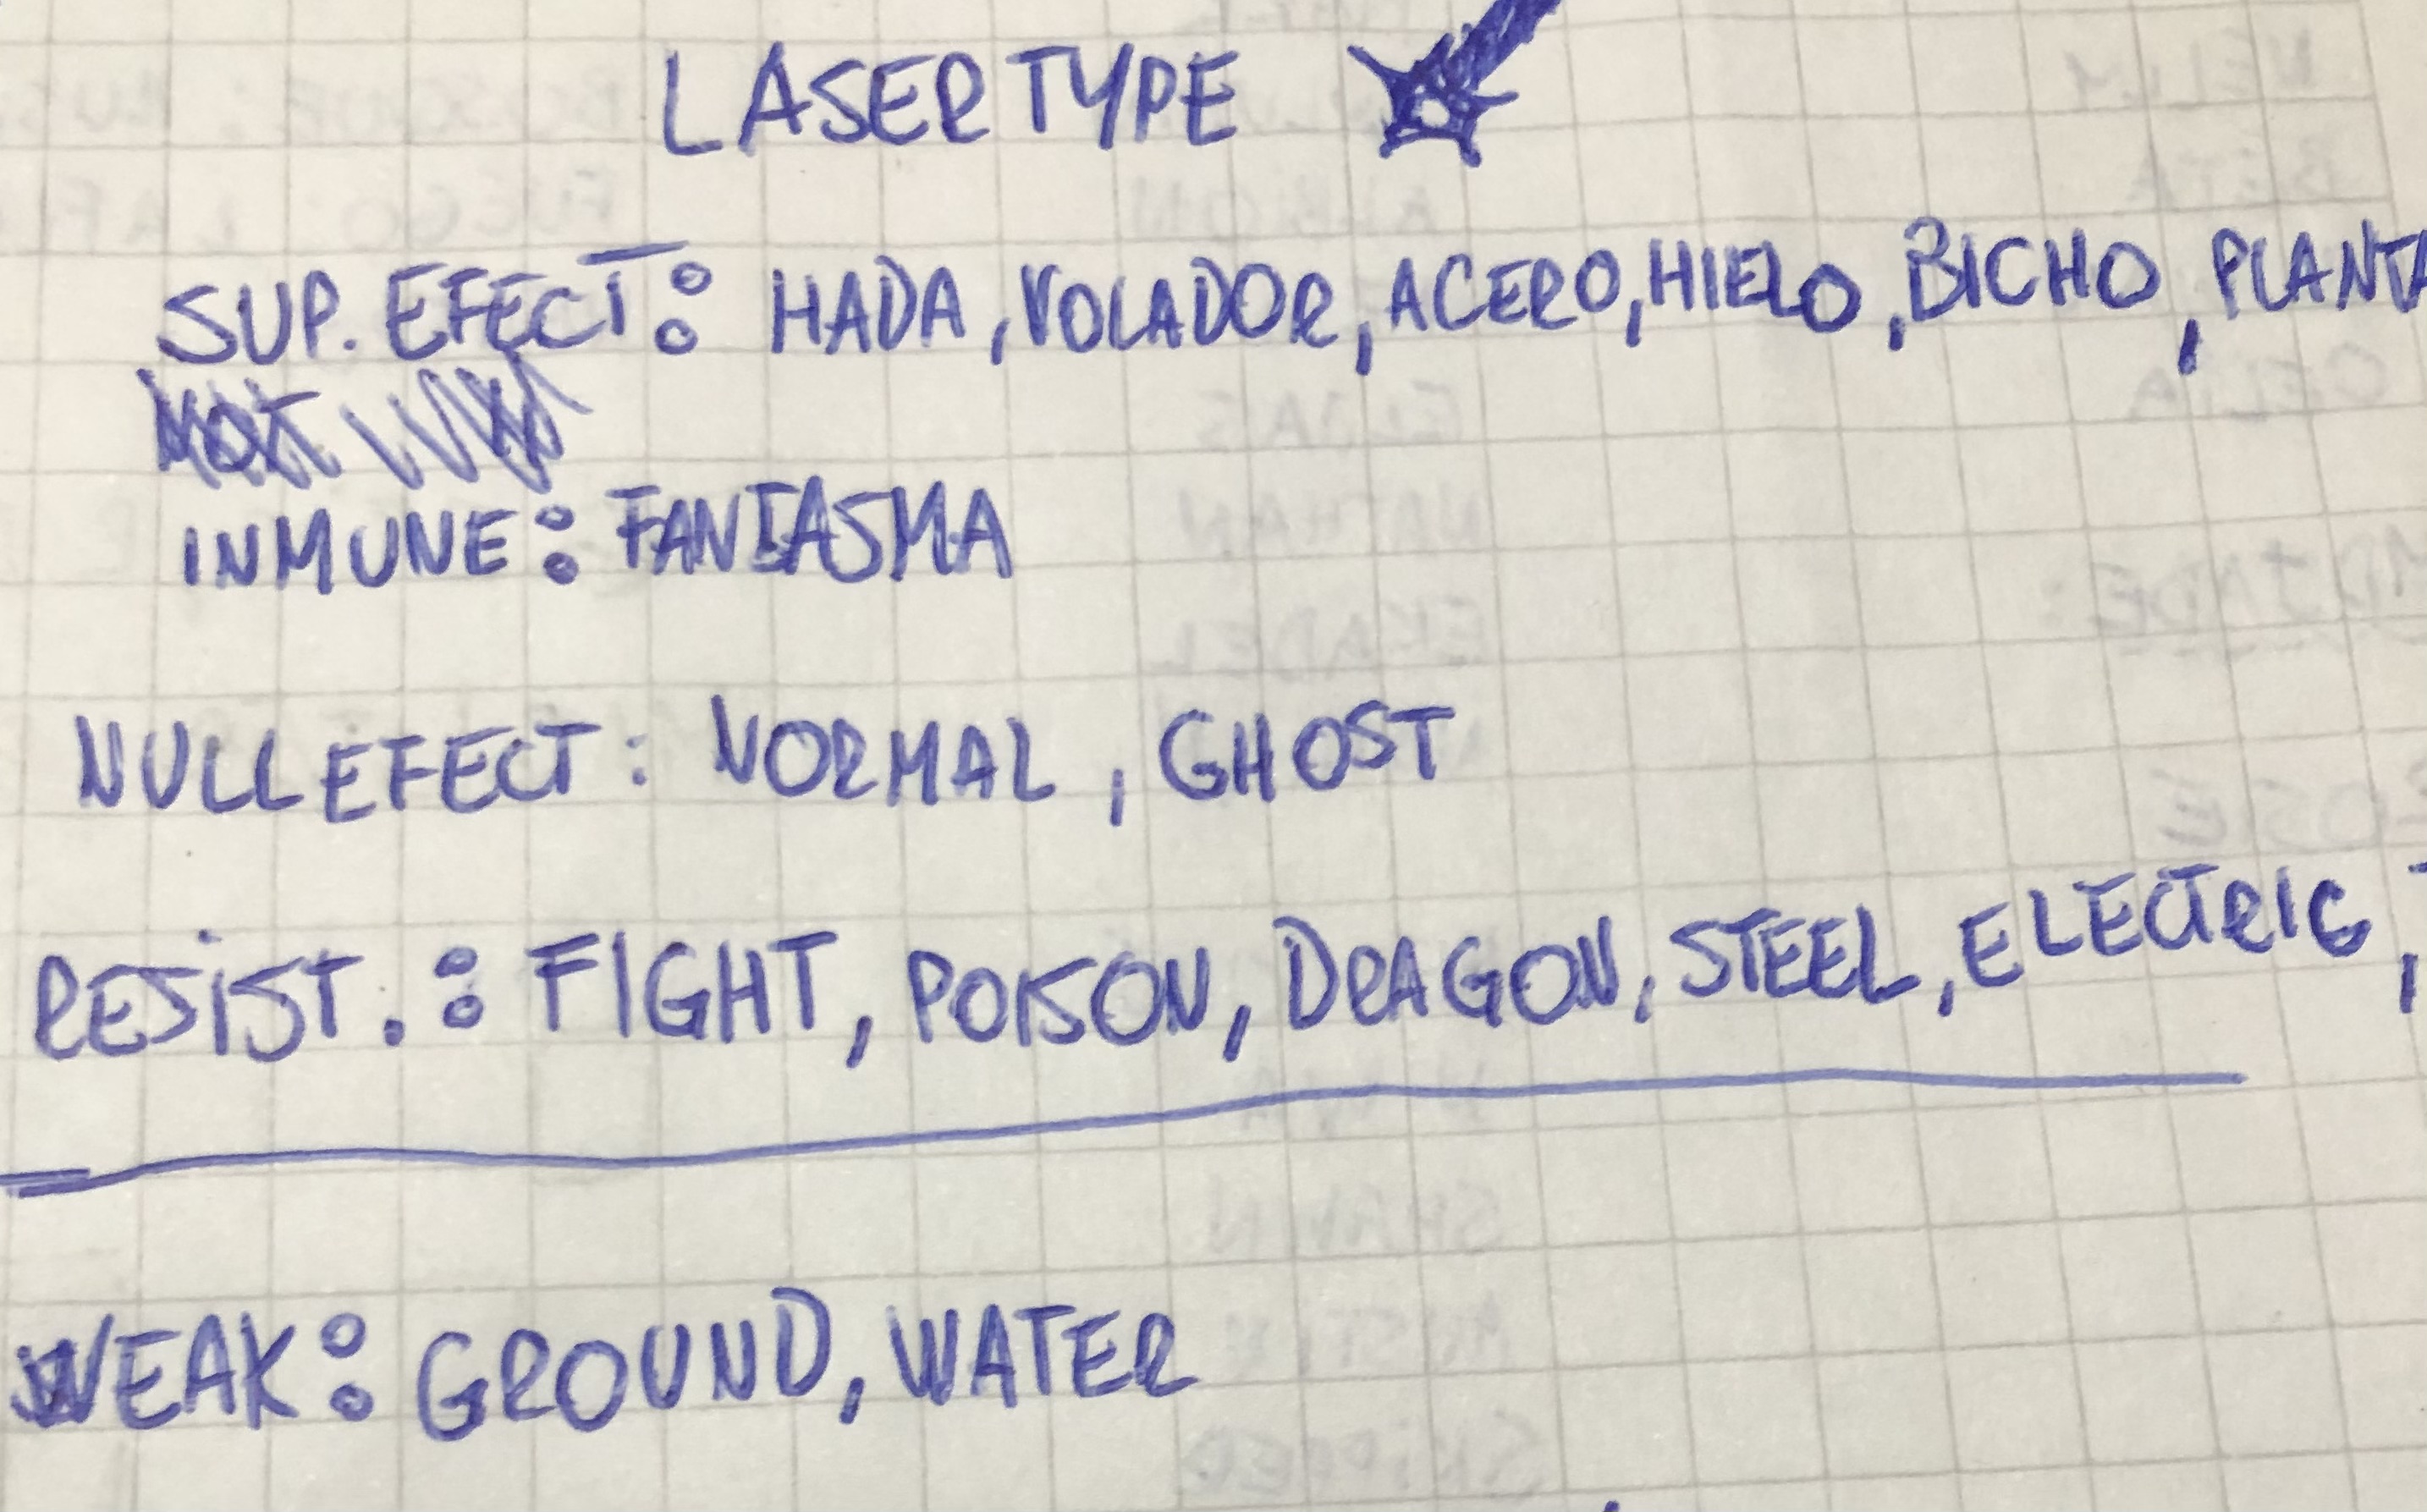 LASER TYPE
SUP. EFECT: HADA, VOLADOR, ACERO, HIELO, BICHO, PLANTA
INMUNE: FANTASMA
NULL EFECT: NORMAL, GHOST
RESIST.: FIGHT, POISON, DRAGON, STEEL, ELECTRIC,
WEAK: GROUND, WATER